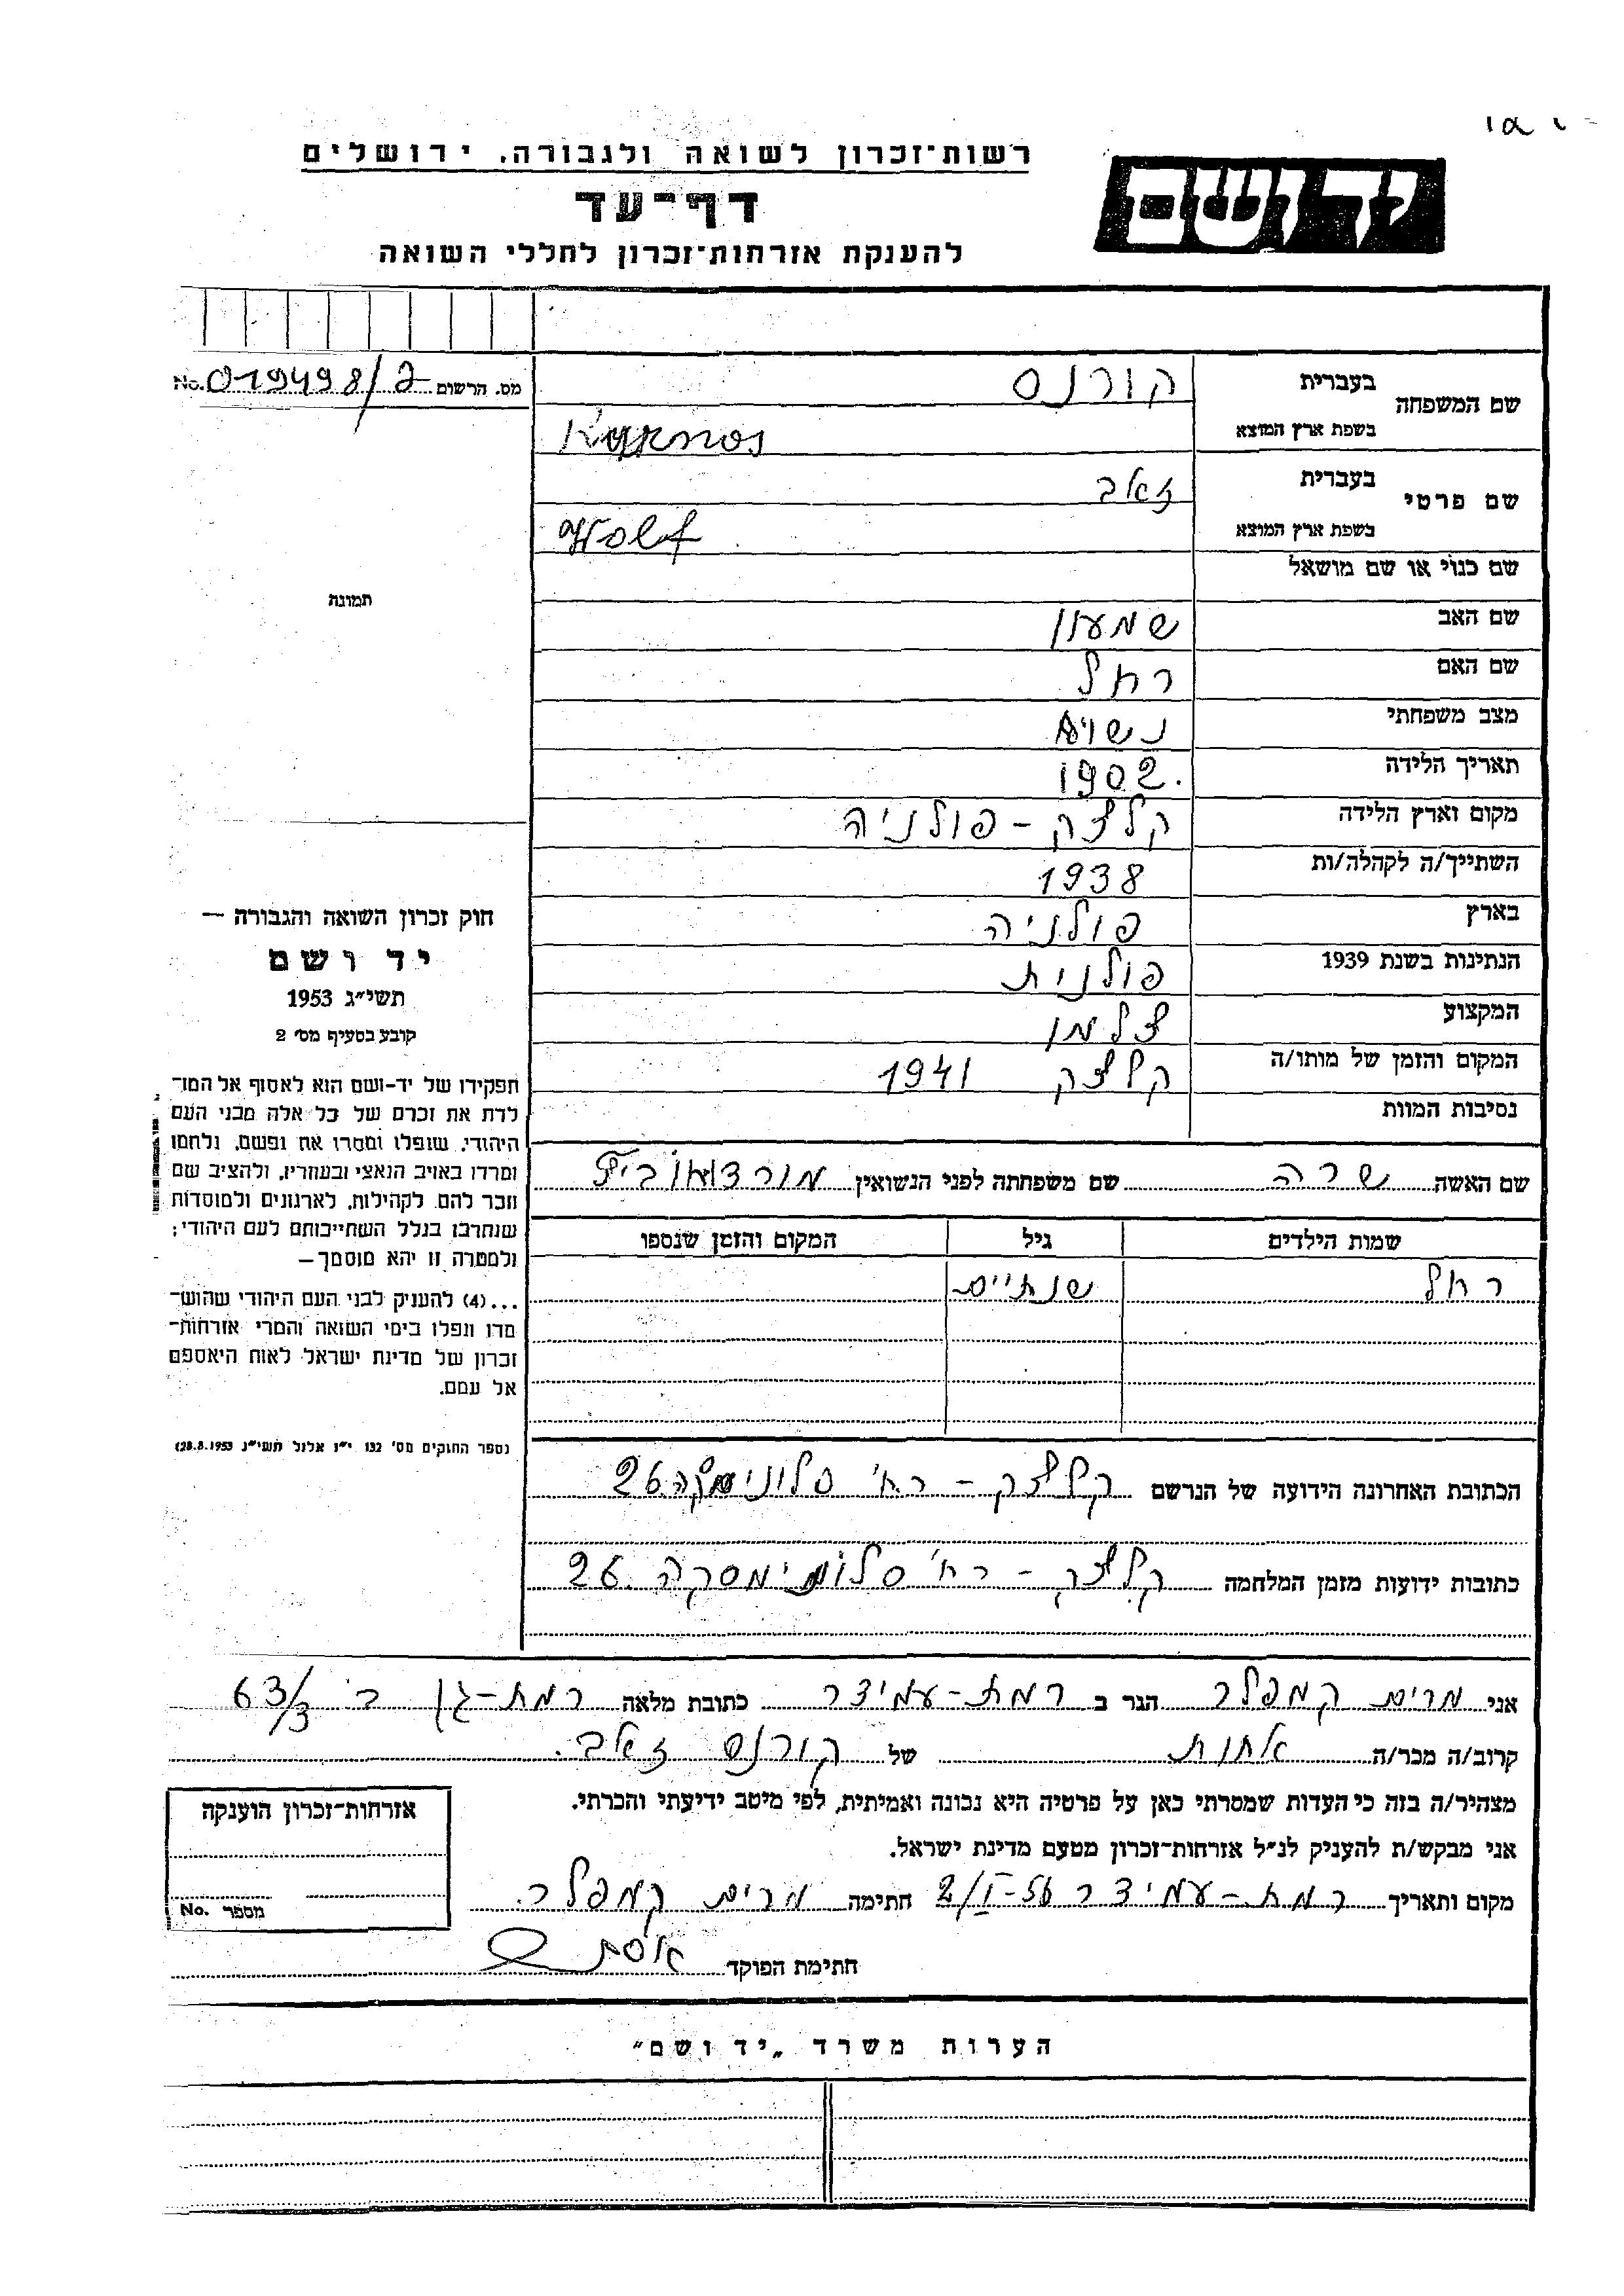 רשות־זכרון לשואה ולגבורה, ירושלים
יד ושם
דף־עד
להענקת אזרחות־זכרון לחללי השואה
מס. הרשום No. 019498/2
שם המשפחה
בעברית קורנס
בשפת ארץ המוצא
שם פרטי
בעברית זאב
בשפת ארץ המוצא Wolf
שם כנוי או שם מושאל
שם האב שמעון
שם האם רחל
מצב משפחתי נשוי
תאריך הלידה 1902.
מקום וארץ הלידה קלצק - פולניה
השתייך/ה לקהלה/ות 1938
בארץ פולניה
הנתינות בשנת 1939 פולנית
המקצוע
המקום והזמן של מותו/ה קלצק 1941
נסיבות המוות
שם האשה שרה שם משפחתה לפני הנשואין
שמות הילדים גיל המקום והזמן שנספו
רחל שנתיים
הכתובת האחרונה הידועה של הנרשם קלצק - רח' 26
כתובות ידועות מזמן המלחמה קלצק - רח' 26
תמונה
חוק זכרון השואה והגבורה —
יד ושם
תשי״ג 1953
קובע בסעיף מס׳ 2
תפקידו של יד-ושם הוא לאסוף אל המו־
לדת את זכרם של כל אלה מבני העם
היהודי, שנפלו ומסרו את נפשם, נלחמו
ומרדו באויב הנאצי ובעוזריו, ולהציב שם
וזכר להם, לקהילות, לארגונים ולמוסדות
שנחרבו בגלל השתייכותם לעם היהודי;
ולמטרה זו יהא מוסמך—
...(4) להענק לבני העם היהודי שהוש־
מדו ונפלו בימי השואה והמרי אזרחות־
זכרון של מדינת ישראל לאות היאספם
אל עמם.
(ספר החוקים מס׳ 132 י״ז אלול תשי״ג 28.8.1953)
אני מרים קמפלר הגר ב רמת-עמידר כתובת מלאה רמת-גן ב' 63/3
קרוב/ה מכר/ה אחות של קורנס זאב.
מצהיר/ה בזה כי העדות שמסרתי כאן על פרטיה היא נכונה ואמיתית, לפי מיטב ידיעתי והכרתי.
אני מבקש/ת להעניק לנ״ל אזרחות־זכרון מטעם מדינת ישראל.
מקום ותאריך רמת-עמידר 2/I-56 חתימה מרים קמפלר.
חתימת הפוקד
אזרחות־זכרון הוענקה
מספר No.
הערות משרד „יד ושם״